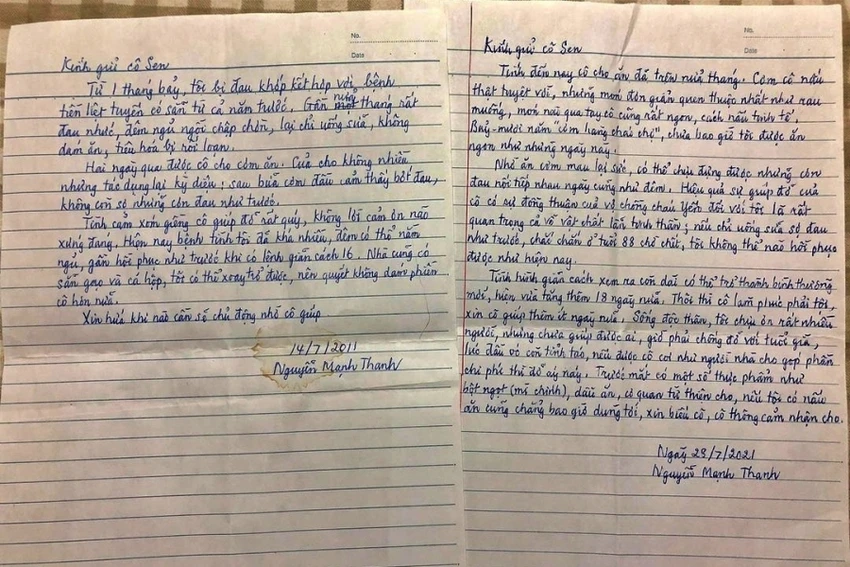 No.
Date
Kính gửi cô Sen
Từ 1 tháng bảy, tôi bị đau khớp kết hợp với bệnh
tiền liệt tuyến có sẵn từ cả năm trước. Gần nửa tháng rất
đau nhức, đêm ngủ ngồi chập chờn, lại chỉ uống sữa, không
dám ăn, tiêu hóa bị rối loạn.
Hai ngày qua được cô cho cơm ăn. Của cho không nhiều
nhưng tác dụng lại kỳ diệu: sau bữa cơm đầu cảm thấy bớt đau,
không còn sợ những cơn đau như trước.
Tình cảm xóm giềng cô giúp đỡ rất quý, không lời cảm ơn nào
xứng đáng. Hiện nay bệnh tình tôi đã khá nhiều, đêm có thể nằm
ngủ, gần hồi phục như trước khi có lệnh giãn cách 16. Nhà cũng có
sẵn gạo và cá hộp, tôi có thể xoay trở được, nên quyết không dám phiền
cô hơn nữa.
Xin hứa khi nào cần sẽ chủ động nhờ cô giúp.
14/7/2011
Nguyễn Mạnh Thanh
No.
Date
Kính gửi cô Sen
Tính đến nay cô cho ăn đã trên nửa tháng. Cơm cô nấu
thật tuyệt vời, những món đơn giản quen thuộc nhất như rau
muống, món nào qua tay cô cũng rất ngon, cách nấu tinh tế.
Bảy-mươi năm "cơm hàng cháo chợ", chưa bao giờ tôi được ăn
ngon như những ngày này.
Nhờ ăn cơm mau lại sức, có thể chịu đựng được những cơn
đau nối tiếp nhau ngày cũng như đêm. Hiệu quả sự giúp đỡ của
cô có sự đồng thuận của vợ chồng cháu Yến đối với tôi là rất
quan trọng cả về vật chất lẫn tinh thần; nếu chỉ uống sữa sợ đau
như trước, chắc chắn ở tuổi 88 chờ chết, tôi không thể nào hồi phục
được như hiện nay.
Tình hình giãn cách xem ra còn dài có thể trở thành bình thường
mới, hiện vừa tăng thêm 18 ngày nữa. Thôi thì cô làm phúc phải tội,
xin cô giúp thêm ít ngày nữa. Sống độc thân, tôi chịu ơn rất nhiều
người, nhưng chưa giúp được ai, giờ phải chống đỡ với tuổi già,
lúc đầu óc còn tỉnh táo, nếu được cô coi như người nhà cho góp phần
chi phí thì đỡ áy náy. Trước mắt có một số thực phẩm như
bột ngọt (mì chính), dầu ăn, cơ quan từ thiện cho, nếu tôi có nấu
ăn cũng chẳng bao giờ dùng tới, xin biếu cô, cô thông cảm nhận cho.
Ngày 28/7/2021
Nguyễn Mạnh Thanh